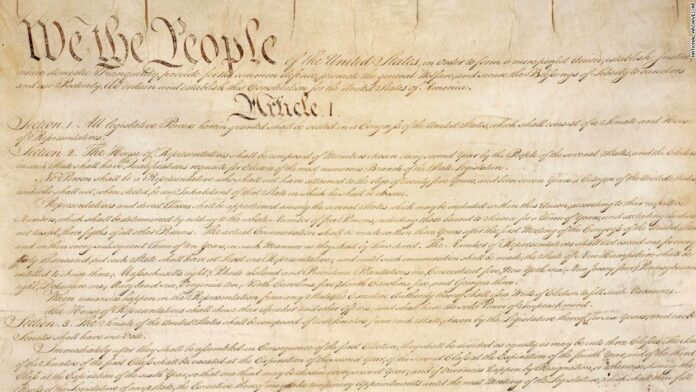 We the People of the United States, in Order to form a more perfect Union, establish
insure domestic Tranquility, provide for the common defence, promote the general Welfare, and secure the Blessings of Liberty to ourselves
and our Posterity, do ordain and establish this Constitution for the United States of America.
Article. I.
Section. 1. All legislative Powers herein granted shall be vested in a Congress of the United States, which shall consist of a Senate and House
of Representatives.
Section. 2. The House of Representatives shall be composed of Members chosen every second Year by the People of the several States, and the Electors
in each State shall have the Qualifications requisite for Electors of the most numerous Branch of the State Legislature.
No Person shall be a Representative who shall not have attained to the Age of twenty five Years, and been seven Years a Citizen of the United States,
and who shall not, when elected, be an Inhabitant of that State in which he shall be chosen.
Representatives and direct Taxes shall be apportioned among the several States which may be included within this Union, according to their respective
Numbers, which shall be determined by adding to the whole Number of free Persons, including those bound to Service for a Term of Years, and excluding Indians
not taxed, three fifths of all other Persons. The actual Enumeration shall be made within three Years after the first Meeting of the Congress of the United States,
and within every subsequent Term of ten Years, in such Manner as they shall by Law direct. The Number of Representatives shall not exceed one for every
thirty Thousand, but each State shall have at Least one Representative; and until such enumeration shall be made, the State of New Hampshire shall be
entitled to chuse three, Massachusetts eight, Rhode Island and Providence Plantations one, Connecticut five, New York six, New Jersey four, Pennsylvania
eight, Delaware one, Maryland six, Virginia ten, North Carolina five, South Carolina five, and Georgia three.
When vacancies happen in the Representation from any State, the Executive Authority thereof shall issue Writs of Election to fill such Vacancies.
The House of Representatives shall chuse their Speaker and other Officers; and shall have the sole Power of Impeachment.
Section. 3. The Senate of the United States shall be composed of two Senators from each State, chosen by the Legislature thereof, for six Years; and each
Senator shall have one Vote.
Immediately after they shall be assembled in Consequence of the first Election, they shall be divided as equally as may be into three Classes. The
of the Senators of the first Class shall be vacated at the Expiration of the second Year, of the second Class at the Expiration of the fourth Year, and of the third
Class at the Expiration of the sixth Year, so that one third may be chosen every second Year; and if Vacancies happen by Resignation, or otherwise, during the
of the Legislature of any State, the Executive thereof may make temporary Appointments until the next Meeting of the Legislature, which shall then fill
NATIONAL ARCHIVES/AP